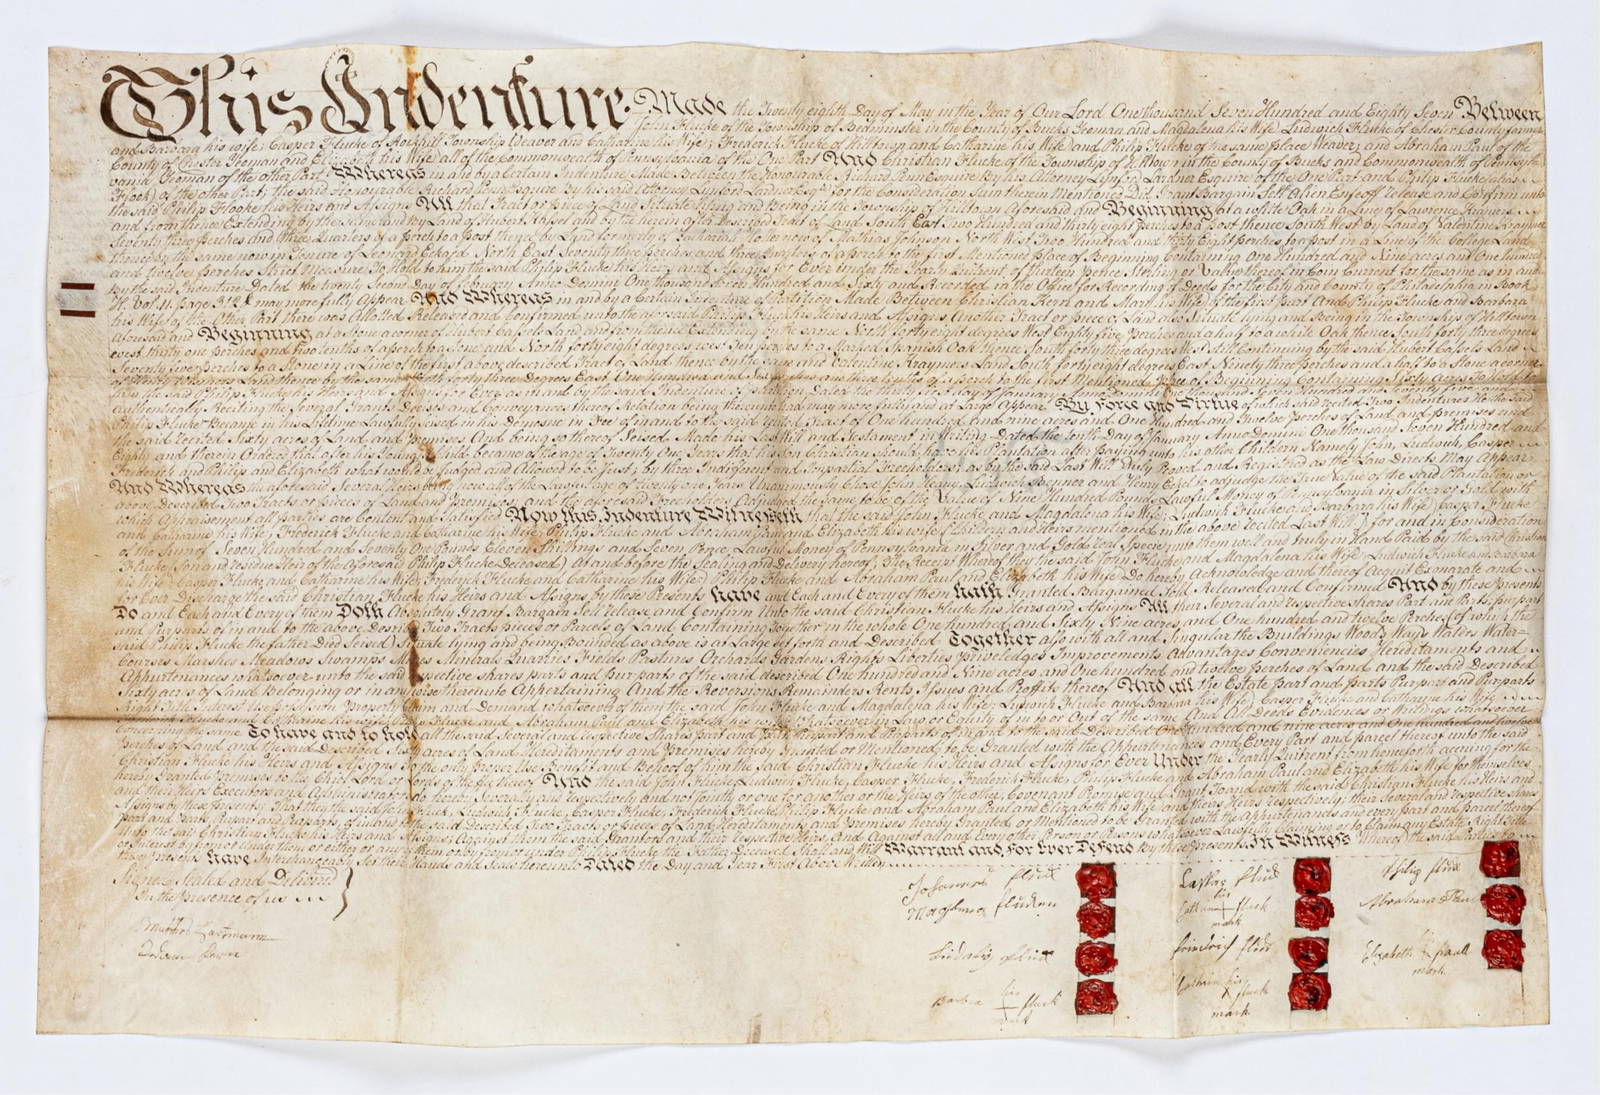 This Indenture. Made the Twenty eighth Day of May in the Year of Our Lord One thousand Seven Hundred and Eighty Seven Between
John Flucke of the Township of Bedminster in the County of Bucks Yeoman and Magdalena his Wife Ludwick Flucke of Chester County farmer
and Barbara his wife; Casper Flucke of Rockhill Township Weaver and Catharine his Wife; Frederick Flucke of Hilltown and Catharine his Wife and Philip Flucke of the same place Weaver; and Abraham Paul of the
County of Chester Yeoman and Elizabeth his Wife all of the Commonwealth of Pensylvania of the One Part And Christian Flucke of the Township of Hilltown in the County of Bucks and Commonwealth of Pensylva-
vania Yeoman of the other Part, Whereas in and by a Certain Indenture Made Between the Honourable Richard Penn Esquire By his Attorney Lynford Lardner Esquire of the One Part and Philip Flucke (alias
of the other Part; the said Honourable Richard Penn Esquire By his said Attorney Lynford Lardner Esqr. for the Consideration Sum therein Mentioned Did Grant Bargain Sell Alien Enfeoff Release and Confirm unto
the said Philip his Heirs and Assigns All that Tract or piece of Land Situate lying and Being in the Township of Hilltown Aforesaid and Beginning at a white Oak in a Line of Lawrence
and from thence Extending by the same and By Land of Hubert Cassel and by the herein after Described Tract of Land South East Two Hundred and thirty eight perches to a post thence South West by Land of Valentine Kraymer
Seventy three Perches and three Quarters of a perch to a post thence by Land formerly of now of Mathias Johnson North West Two Hundred and thirty Eight perches to a post in a Line of the College Land
thence by the same now in Tenure of Leonard Eckard North East Seventy three perches and three Quarters of a perch to the first Mentioned place of Beginning Containing One Hundred and Nine acres and One Hundred
and twelve Perches Strict Measure To Hold to him the said Philip Flucke his Heirs and Assigns for Ever under the Yearly Quitrent of Sterling or Value thereof in Coin Current for the same as in and
by the said Indenture Dated the twenty Second Day of Anno Domine One Thousand Seven Hundred and Sixty and Recorded in the Office for Recording of Deeds for the City and County of Philadelphia in Book
H. Vol. 11. page 312 &c may more fully Appear And Whereas in and by a Certain Indenture of Partition Made Between Christian Kern and Mary his Wife of the first Part And Philip Flucke and Barbara
his Wife of the Other Part there was Allotted Released and Confirmed unto the aforesaid Philip Flucke his Heirs and Assigns Another Tract or piece of Land also Situate lying and Being in the Township of Hilltown
Aforesaid and Beginning at a Stone a corner of Hubert Cassels Land and from thence Extending in the same North forty eight degrees West Eighty five Perches and a half to a white Oak thence South forty three degrees
west thirty one Perches and two tenths of a perch to a Stone and North forty eight degrees west Ten perches to a Marked Spanish Oak thence South forty three degrees West Still Continuing by the said Hubert Cassels Land
Seventy five Perches to a Stone in a Line of the first above described Tract of Land thence by the same and Valentine Kraymers Land South forty eight degrees East Ninety three perches and a half to a Stone a corner
of Land thence by the same North forty three Degrees East One Hundred and three tenths of a Perch to the first Mentioned Place of Beginning Containing Sixty Acres To hold to
him the said Philip Flucke his Heirs and Assigns for Ever as in and by the said Indenture of Partition Dated the thirty first day of January Anno Domini One Thousand Seven Hundred and
Authentically Reciting the Several Grants Devises and Conveyances thereof Relation being thereunto had may more fully and at Large Appear By Force and Virtue of which said recited Two Indentures He the said
Philip Flucke Became in his Lifetime Lawfully seised in his Demesne in Fee of in and to the said recited Tract of One Hundred and nine acres and One Hundred and Twelve Perches of Land and premises and
the said recited Sixty acres of Land and Premises And being so thereof Seised Made his Last Will and Testament in Writing Dated the tenth Day of January Anno Domini One thousand Seven Hundred and
Eighty and therein Ordered that after his Son became of the age of Twenty One Years that his Son Christian should have his Plantation after paying unto his other Children Namely John, Ludwick, Casper
Frederick and Philip and Elizabeth what would be Judged and Allowed to be Just; by three Indifferent and Impartial Freeholders; as by the said Last Will Duly Proved and Registred as the Law Directs May Appear
And Whereas the aforesaid Several Heirs being now all of the Lawful age of twenty one Years Unanimously Chose John Henry, Ludwick Benner and Henry Eckel to adjudge the True Value of the said Plantation or
above Described Two Tracts or pieces of Land and Premises, and the aforesaid Freeholders Adjudged the Same to be of the Value of Nine Hundred Pounds Lawful Money of Pennsylvania in Silver or Gold with
which Appraisement all parties are Content and Satisfied Now this Indenture Witnesseth that the said John Flucke and Magdalena his Wife; Ludwick Flucke and Barbara his wife; Casper Flucke
and Catharine his Wife; Frederick Flucke and Catharine his Wife Philip Flucke and Abraham Paul and Elizabeth his wife (Children and Heirs mentioned in the above recited Last Will) for and in Consideration
of the Sum of Seven Hundred and Seventy One Pounds Eleven Shillings and Seven Pence, Lawful Money of Pennsylvania in Silver and Gold Real Specie unto them well and truly in Hand Paid by the said Christian
Flucke (Son and residue Heir of the Aforesaid Philip Flucke Deceased) At and before the Sealing and Delivery hereof, The Receipt Whereof they the said John Flucke and Magdalena his Wife; Ludwick Flucke and Barbara
his Wife; Casper Flucke, and Catharine his Wife; Frederick Flucke and Catharine his Wife; Philip Flucke and Abraham Paul and Elizabeth his Wife Do hereby Acknowledge and thereof Acquit Exonerate and
for Ever Discharge the said Christian Flucke his Heirs and Assigns by these Presents Have and Each and Every of them Hath Granted Bargained Sold Released and Confirmed And by these Presents
Do and Each and Every of them Doth Absolutely Grant Bargain Sell Release and Confirm Unto the said Christian Flucke his Heirs and Assigns All their Several and respective shares Part and Parts, purpart
and purparts of in and to the above Described Two Tracts pieces or Parcels of Land Containing Together in the whole One Hundred and Sixty Nine acres and One Hundred and twelve Perches (of which the
said Philip Flucke the father Died Seised) Situate lying and being Bounded as above is at Large set forth and Described Together also with all and Singular the Buildings Woods Ways Waters Water-
Courses Marshes Meadows Swamps Mines Minerals Quarries Fields Pastures Orchards Gardens Rights Liberties Priveledges Improvements Advantages Conveniencies Hereditaments and
Appurtenances whatsoever unto the said respective shares parts and purparts of the said described One Hundred and Nine acres and One Hundred and twelve Perches of Land and the said Described
Sixty acres of Land Belonging or in anywise thereunto Appertaining And the Reversions Remainders Rents Issues and Proffits thereof And all the Estate part and parts Purpart and Purparts
Right Title Interest Use Possession Property Claim and Demand whatsoever of them the said John Flucke and Magdalena his Wife; Ludwick Flucke and Barbara his Wife; Casper Flucke and Catharine his Wife
Frederick Flucke and Catharine his wife Philip Flucke and Abraham Paul and Elizabeth his wife Whatsoever in Law or Equity of in to or Out of the same And All Deeds Evidences or Writings whatsoever
Concerning the same To have and to hold all the said Several and respective Shares part and parts Purpart and Purparts of in and to the said Described One Hundred and nine acres and One hundred and twelve
Perches of Land and the said Described Sixty acres of Land Hereditaments and Premises hereby Granted or Mentioned to be Granted with the Appurtenances and Every Part and parcel thereof unto the said
Christian Flucke his Heirs and Assigns To the only Proper Use Benefit and Behoof of him the said Christian Flucke his Heirs and Assigns for Ever Under the Yearly Quitrent from henceforth accruing for the
hereby Granted Premises to the Chief Lord or Lords of the fee thereof And the said John Flucke Ludwick Flucke, Casper Flucke, Frederick Flucke, Philip Flucke and Abraham Paul and Elizabeth his Wife for themselves
and their Heirs Executors and Administrators do hereby Severally and respectively and not Jointly or one for another or the Heirs of the other, Covenant Promise and Grant To and with the said Christian Flucke his Heirs and
Assigns by these Presents That they the said John Flucke, Ludwick Flucke, Casper Flucke, Frederick Flucke, Philip Flucke and Abraham Paul and Elizabeth his Wife and their Heirs respectively; their Several and respective shares
part and Parts, Purpart and Purparts of in and to the said Described Two Tracts or pieces of Land Hereditaments and Premises hereby Granted or Mentioned to be Granted with the Appurtenances and every part and parcel thereof
Unto the said Christian Flucke his Heirs and Assigns Against them the said Grantors and their respective Heirs and Against all and Every other Person or Persons whatsoever Lawfully Claiming or to Claim any Estate Right Title
or Interest by from or Under them or either or any of them or by from or under Philip Flucke the Father Deceased Shall and Will Warrant and For Ever Defend by these Presents In Witness Whereof the said Parties to
these presents have Interchangeably set their Hands and Seals hereunto Dated the Day and Year First Above Written
Signed Sealed and Delivered
In the presence of us
Johannes Fluck
Magdlena Flucken
Ludwig Fluck
Barbra his Fluck
mark
Casspar Fluck
Cathari his Fluck
mark
Friedrich Fluck
Cathrin his Fluck
mark
Philip Fluck
Abraham Paul
Elizabeth Paull
mark